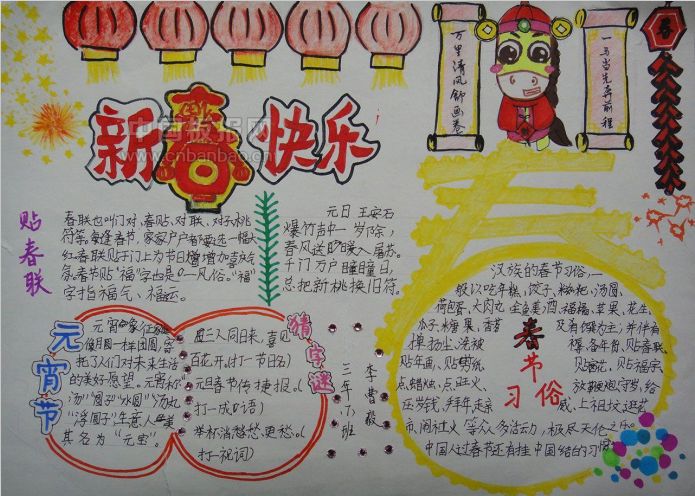 万里清风舒画卷
一马当先奔前程
春
新春快乐
中国板报网
www.cnbanbao.cn
贴春联
春联也叫门对、春贴、对联、对子、桃
符等。每逢春节，家家户户都要选一幅大
红春联贴于门上为节日增加喜庆气
氛。春节贴“福”字也是一风俗。“福”
字指福气、福运。
元日 王安石
爆竹声中一岁除，
春风送暖入屠苏。
千门万户曈曈日，
总把新桃换旧符。
元宵节
元宵象征
像月圆一样团圆，寄
托了人们对未来生活
的美好愿望。元宵称
“汤”“圆子”“水圆”“汤丸”
“浮圆子”，生意人
其名为“元宝”。
猜字谜
三人同日来，喜见
百花开。（打一节日名）
元旦春节传捷报。（
打一成语）
举杯消愁愁更愁。（
打一祝词）
三年六班
李曹毅
春节习俗
汉族的春节习俗，一
般以吃年糕、饺子、糍粑、汤圆、
荷包蛋、大肉丸、全鱼、美酒、福橘、苹果、花生、
瓜子、糖果、香茗及肴馔为主；并伴有
掸扬尘、洗被、备年货、贴春联、
贴年画、贴剪纸、贴窗花、贴福字、
点蜡烛、点旺火、放鞭炮、守岁、给
压岁钱、拜年、走亲戚、上祖坟、逛花
市、闹社火等众多活动，极尽天伦之乐。
中国人过春节还有挂中国结的习惯